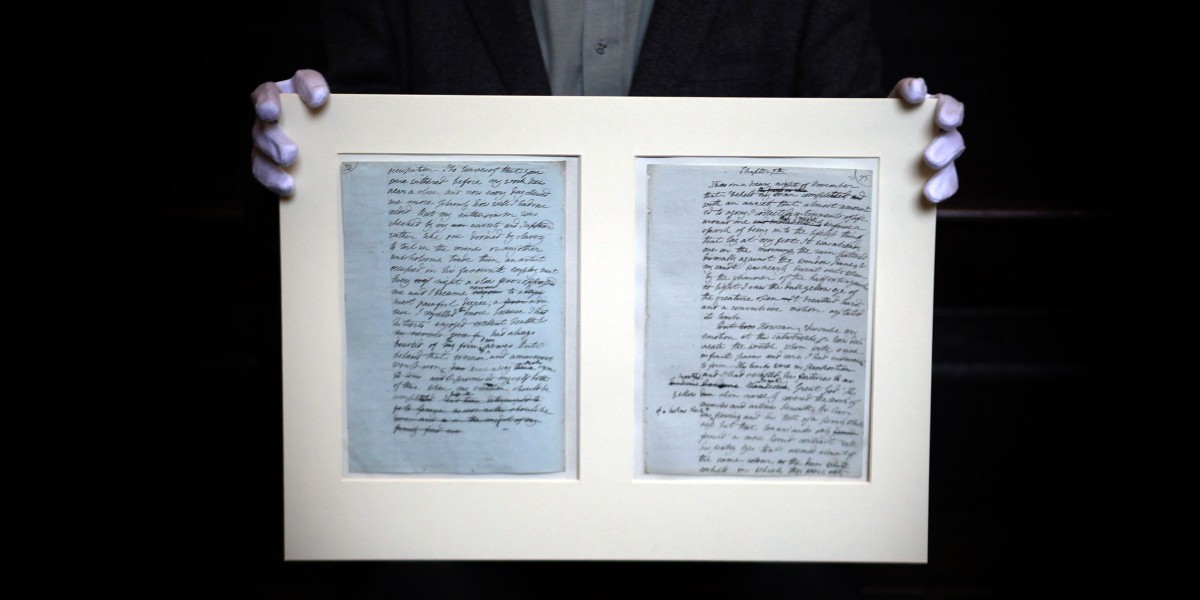 occupation. The leaves of that year
were withered before my work drew
near a close and now every day shewed
me more plainly how well I had suc
ceeded But my enthusiasm was
checked by my anxiety and I appeared
rather like one doomed by slavery
to toil in the mines or another
unwholsome trade than an artist
occupied in his favourite employment
Every night a slow fever oppressed
me and I became nervous to a
most painful degree; a
I regretted more because I had
hitherto enjoyed excellent health &
had always
boasted of my firm nerves. But I
beleived that exercise and amusement
would soon drive away such
and I promised myself both
of these when my creation should be
completed
Chapter 7th
It was on a dreary night of November
that I beheld my man completed and
with an anxiety that almost amount
ed to agony I collected instruments of life
around me infuse a
spark of being into the lifeless thing
that lay at my feet. It was already
one in the morning, the rain pattered
dismally against the window panes &
my candle was nearly burnt out, when
by the glimmer of the half extinguish
ed light I saw the dull yellow eye of
the creature open. It breathed hard,
and a convulsive motion agitated
its limbs.
But how How can I describe my
emotion at this catastrophe; or how deli
neate the wretch whom with such
infinite pains and care I had endeavoured
to form. His limbs were in proportion
and I had selected his features as
handsome Great God! His
yellow skin scarcely covered the work of
muscles and arteries beneath; his hair
of a lustrous black & flowing and his teeth of a pearly white
ness but these luxuriances only
formed a more horrid contrast with
his watry eyes that seemed almost of
the same colour as the dun white
sockets in which they were set